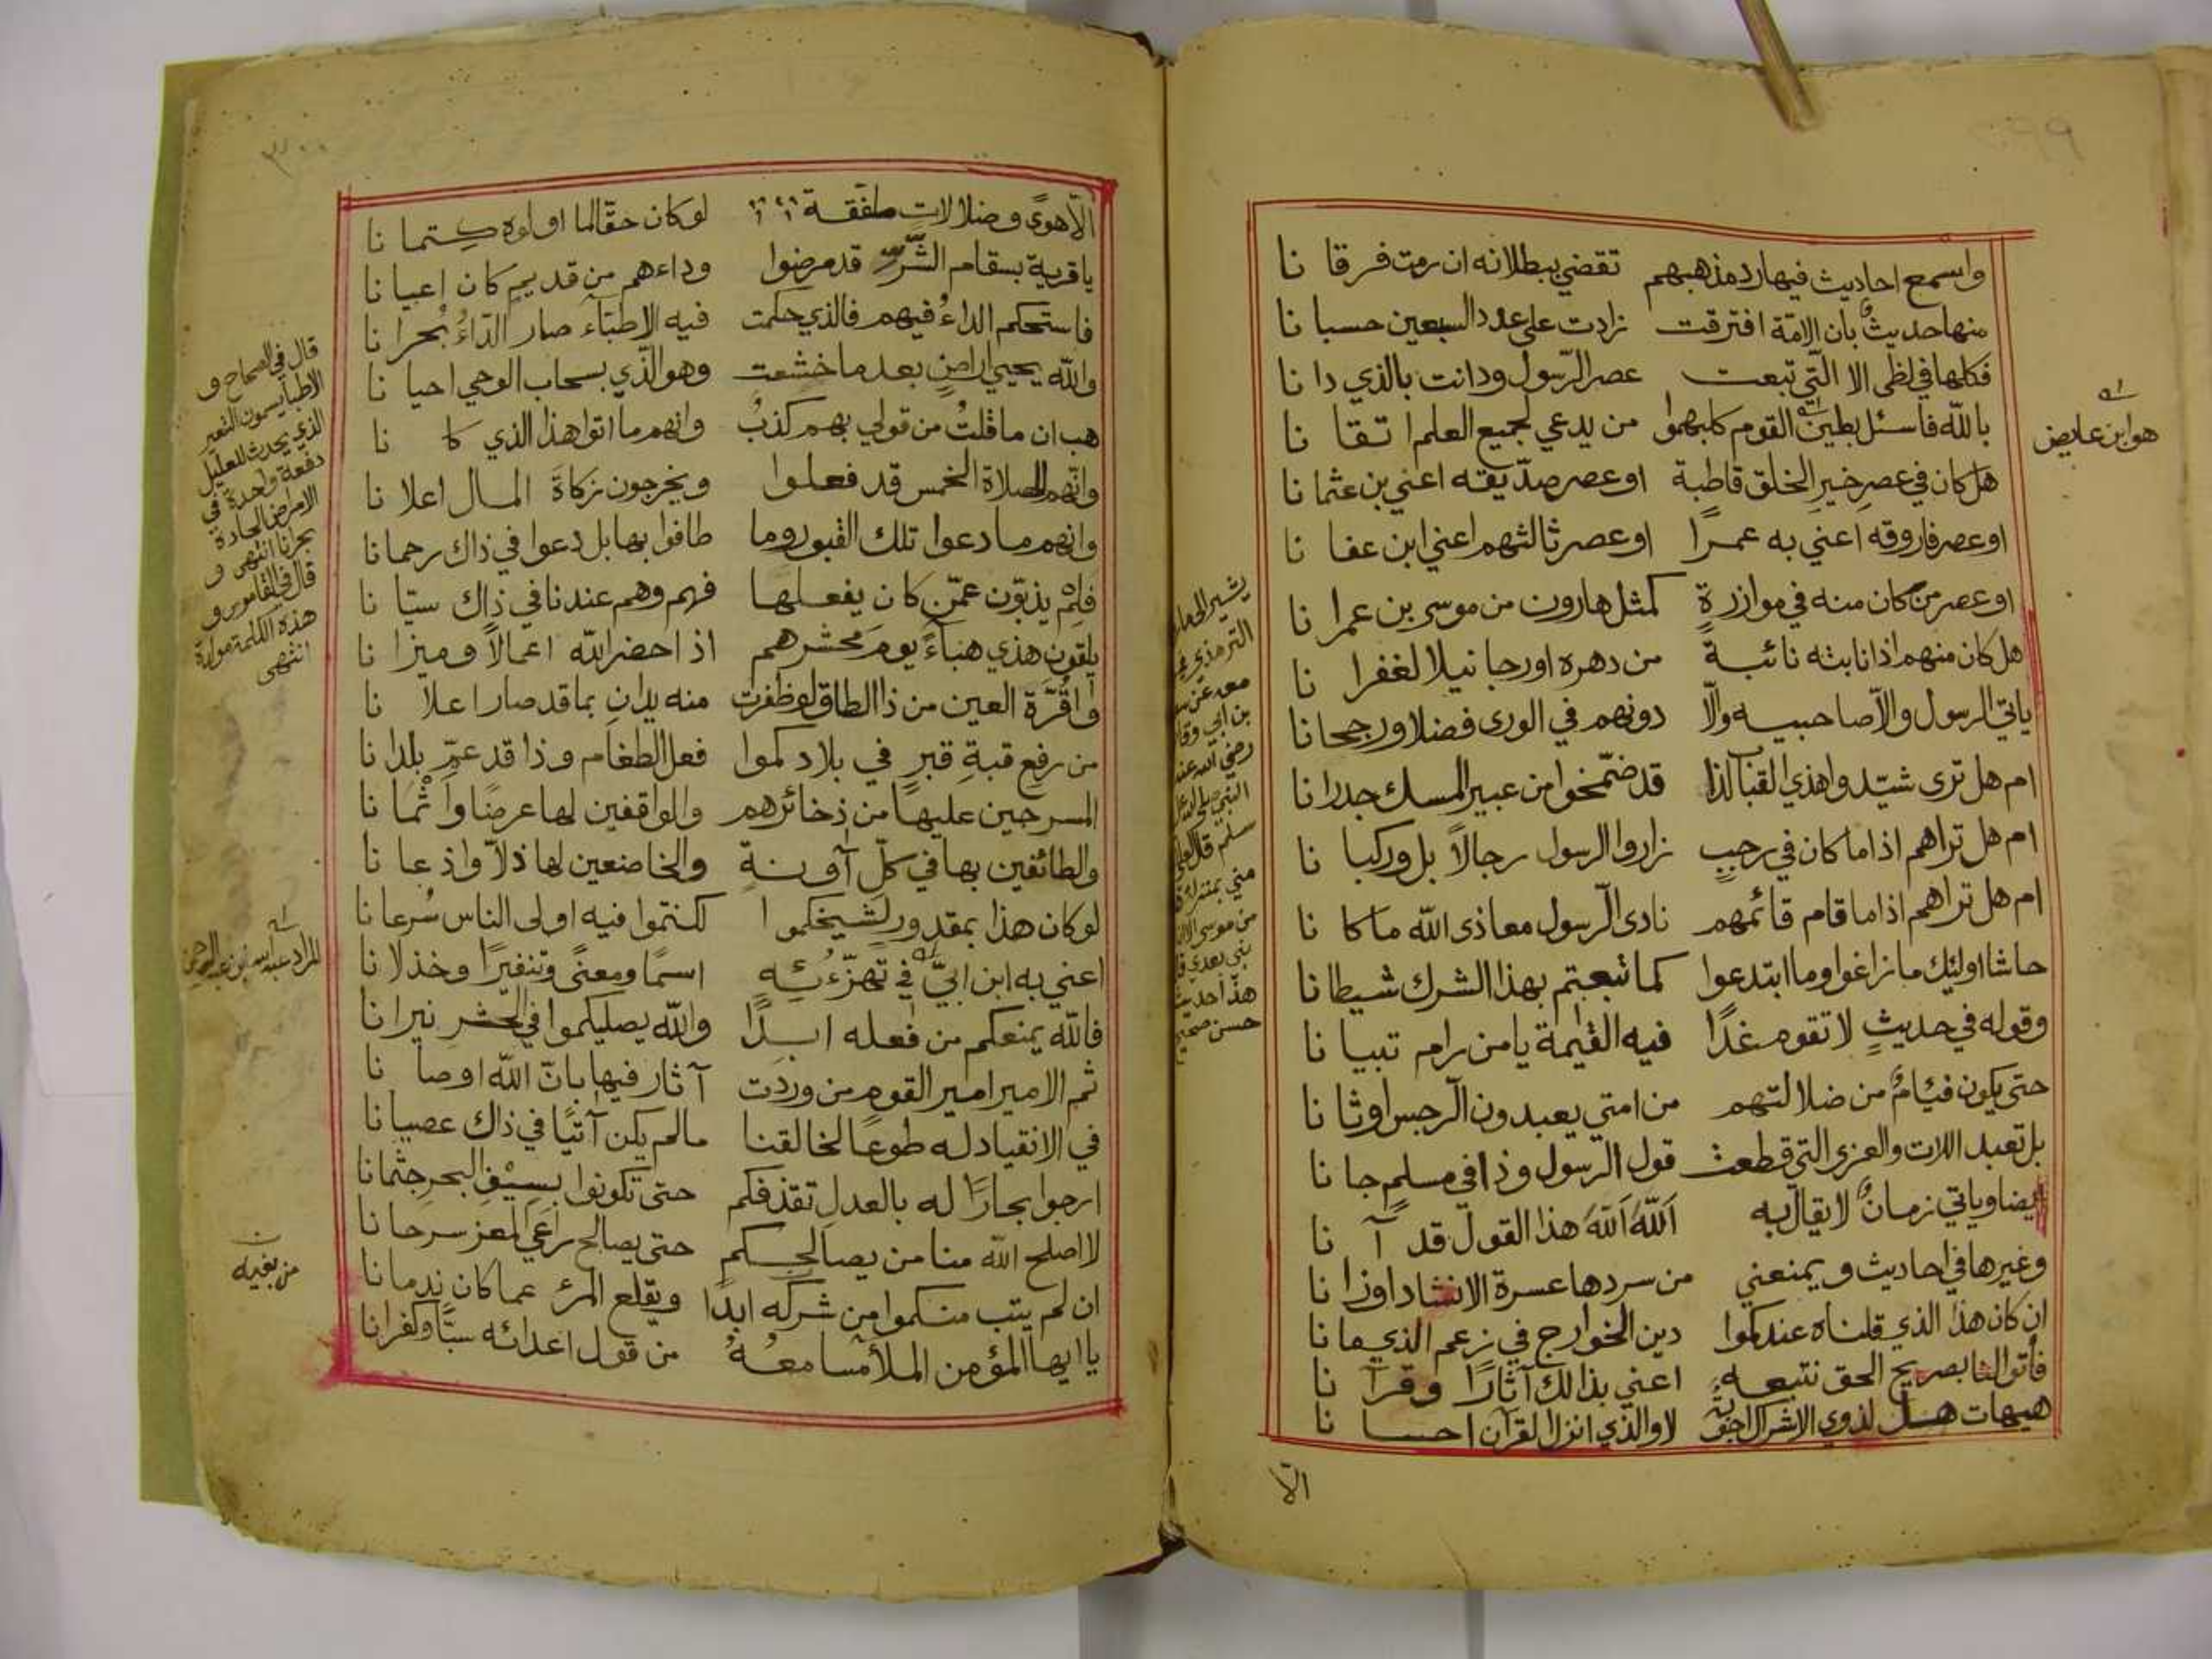 ٢٩٩
واسمع احاديث فيها رد مذهبهم تقضي ببطلانه ان رمت فرقا نا
منها حديث بأن الامّة افترقت زادت على عدد السبعين حسبا نا
فكلها في لظى الا الّتي تبعت عصر الرّسول ودانت بالذي دا نا
بالله فاسئل بطين القوم كلبهموا من يدعي لجميع العلم اتقا نا
هل كان في عصر خير الخلق قاطبة او عصر صدّيقه اعني بن عثما نا
او عصر فاروقه اعني به عمرًا او عصر ثالثهم اعني ابن عفا نا
او عصر من كان منه في موازرةٍ كمثل هارون من موسى بن عمرا نا
هل كان منهم اذا نابته نائبة من دهره او رجا نيلا لغفرا نا
ياتي الرسول والّا صاحبيه والّا دونهم في الورى فضلا ورجحانا
ام هل ترى شيّدوا هذي القباب لذا قد ضمّخوا من عبير المسك جدرانا
ام هل تراهم اذا ما كان في رجبٍ زاروا الرسول رجالاً بل وركبا نا
ام هل تراهم اذا ما قام قائمهم نادى الّرسول معاذى الله ما كا نا
حاشا اوليك ما زاغوا وما ابتدعوا كما تبعتم بهذا الشرك شيطانا
وقوله في حديثٍ لا تقوم غدًا فيه القيمة يا من رام تبيا نا
حتى يكون فيئامٌ من ضلالتهم من امتي يعبدون الّرجس اوثا نا
بل تعبد اللات والعزى التي قطعت قول الرسول وذا في مسلمٍ جا نا
ايضا وياتي زمانٌ لا يقال به اَللّهُ اَللّهَ هذا القول قد آ نا
وغيرها في احاديث ويمنعني من سردها عسرة الانشاد اوزا نا
ان كان هذا الذي قلناه عندكموا دين الخوارج في زعم الذي ما نا
فأتوا لنا بصريح الحق نتبعه اعني بذالك آثارًا وقرآ نا
هيهات هل لذوي الاشراك اجوبةٌ لا والذي انزل القرآن احسا نا
الّا
هو ابن عايض
يشير الى
الترمذي
رضي الله عنه
حسن صحيح
٣٠٠
الّا هوىً وضلالات ملفقة لو كان حقّا لما اولوه كتما نا
يا قرية بسقام الشّرك قد مرضوا وداءهم من قديم كان اعيا نا
فاستحكم الداءُ فيهم فالذي حكمت فيه الاطبّآء صار الدّاءُ بُحرا نا
والله يحيي اراضٍ بعد ما خشعت وهو الّذي بسحاب الوحي احيا نا
هب ان ما قلتُ من قولي بهم كذبٌ وانهم ما اتوا هذا الذي كا نا
وانّهم للصلاة الخمس قد فعلوا ويخرجون زكاةَ المال اعلا نا
وانهم ما دعوا تلك القبور وما طافوا بها بل دعوا في ذاك رحمانا
فلِمْ يذبّون عمّن كان يفعلها فهم وهم عندنا في ذاك سيّا نا
يلقون هذي هباءً يومَ محشرهم اذا احضر الله اعمالاً وميزا نا
وا قُرّة العين من ذا الطاق لو ظفرت منه يدان بما قد صار اعلا نا
من رفع قبةِ قبرٍ في بلادكموا فعل الطغام وذا قد عمّ بلدا نا
المسرجين عليها من ذخائرهم والواقفين لها عرضًا واَثْمَا نا
والطائفين بها في كلّ آونةٍ والخاضعين لها ذلاّ واذعا نا
لو كان هذا بمقدور لشيخكموا لكنتموا فيه اولى الناس سُرعا نا
اعني به ابن ابيّ في تهزّءُئِهِ اسمًا ومعنًى وتنفيرًا وخذلا نا
فالله يمنعكم من فعله ابدًا والله يصليكموا في الحشر نيرا نا
ثم الامير امير القوم من وردت آثار فيها بانّ الله اوصا نا
في الانقياد له طوعًا لخالقنا مالم يكن آتيًا في ذاك عصيا نا
ارجوا بجارًا له بالعدل تقذفكم حتى تكونوا بسِيْفِ البحر جثمانا
لا اصلح الله منا من يصالحكم حتى يصالح راعي المعز سرحا نا
ان لم يتب منكموا من شركه ابدًا ويقلع المرء عما كان ندما نا
يا ايها المؤمن الملأ مسامعهُ من قول اعدائه سبّا وكفرا نا
قال في الصحاح و
الاطبا يسمون التغير
الذي يحدث للعليل
دفعة واحدة في
الامراض الحادة
بحرانا انتهى و
قال في القاموس و
هذه الكلمة مولدة
انتهى
المراد عبد الله بن عبد الرحمن
من بغيه